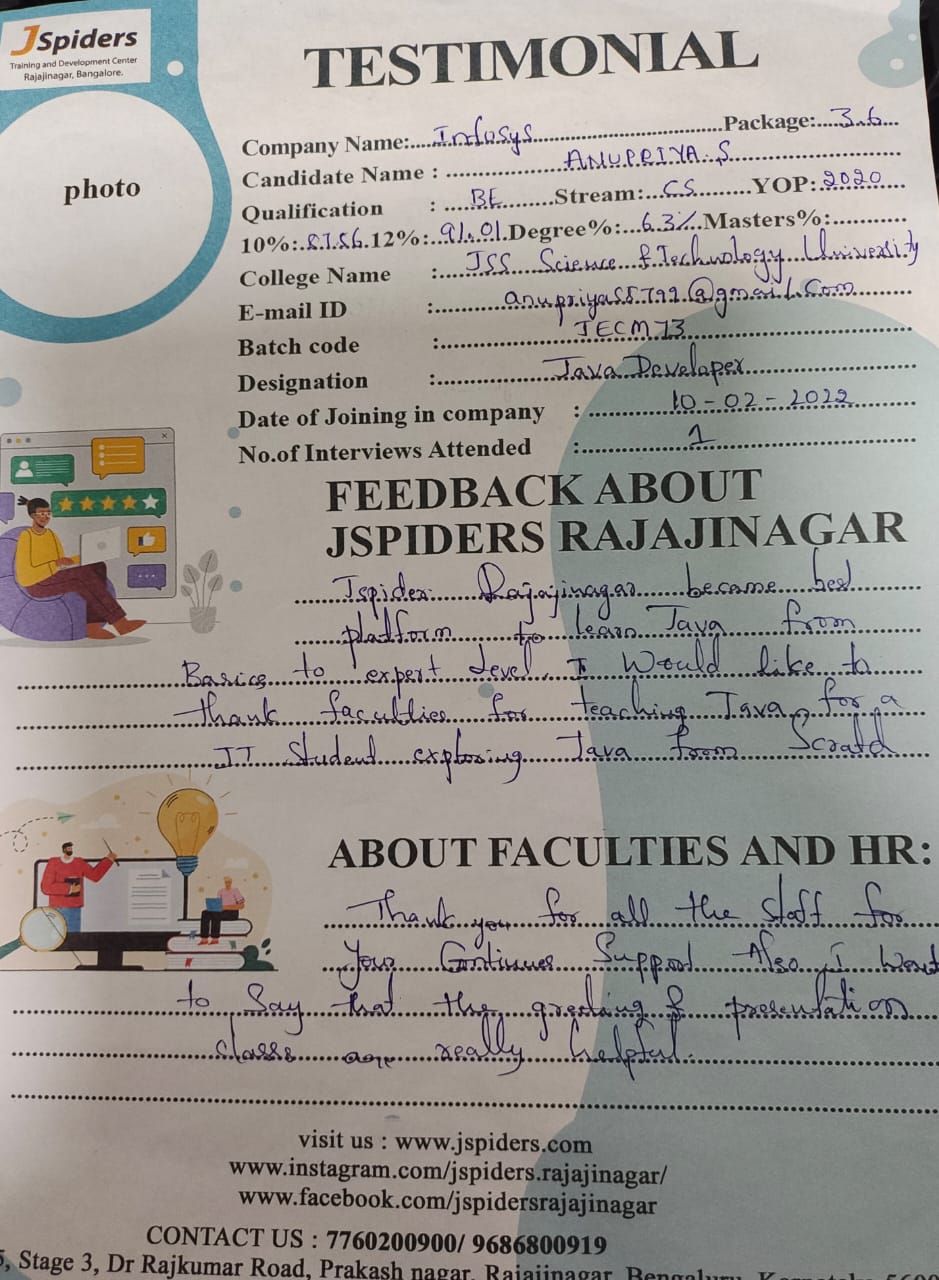 JSpiders
Training and Development Center
Rajajinagar, Bangalore.
TESTIMONIAL
photo
Company Name:....Infosys....Package:....3.6...
Candidate Name : ....ANUPRIYA.S....
Qualification : ....BE....Stream:...CS....YOP:.2020....
10%:.87.56.12%:..91.01.Degree%:...6.3%.Masters%:....
College Name :....JSS Science & Technology University
E-mail ID :....@gmail.com....
Batch code :....JECM73....
Designation :....Java Developer....
Date of Joining in company : ....10-02-2022....
No.of Interviews Attended :....1....
FEEDBACK ABOUT
JSPIDERS RAJAJINAGAR
Jspider Rajajinagar became best
platform to learn Java from
Basics to expert level, I would like to
thank faculties for teaching Java for a
student exploring Java from Scratch
ABOUT FACULTIES AND HR:
Thank you for all the staff for
your Continues Support Also I Want
to Say that the & presentation
class are really helpful.
visit us : www.jspiders.com
www.instagram.com/jspiders.rajajinagar/
www.facebook.com/jspidersrajajinagar
CONTACT US : 7760200900/ 9686800919
5, Stage 3, Dr Rajkumar Road, Prakash nagar, Rajajinagar, Bengaluru, Karnataka 5600